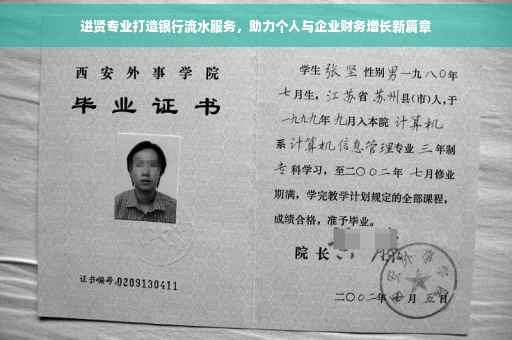 进贤专业打造银行流水服务，助力个人与企业财务增长新篇章
西安外事学院
毕业证书
证书编号:0209130411
学生 张坚 性别 男 一九八〇年
七月生，江苏省 苏州县(市)人，于
一九九九年 九月入本院 计算机
系 计算机信息管理专业 三 年制
专科学习，至二〇〇二年 七月修业
期满，学完教学计划规定的全部课程，
成绩合格，准予毕业。
院长
二〇〇二年 月 五日